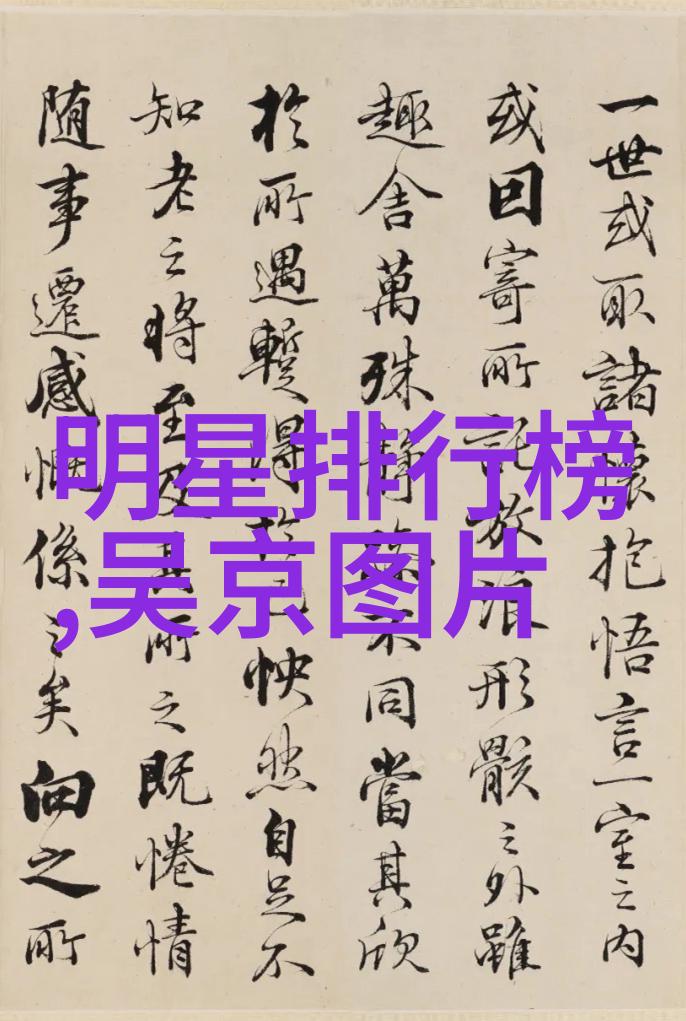 一世或取諸懷抱悟言一室之内
或因寄所託放浪形骸之外雖
趣舍萬殊靜躁不同當其欣
於所遇暫得於己怏然自足不
知老之將至及其所之既惓情
随事遷感慨係之矣向之所
明星排行榜
,吴京图片